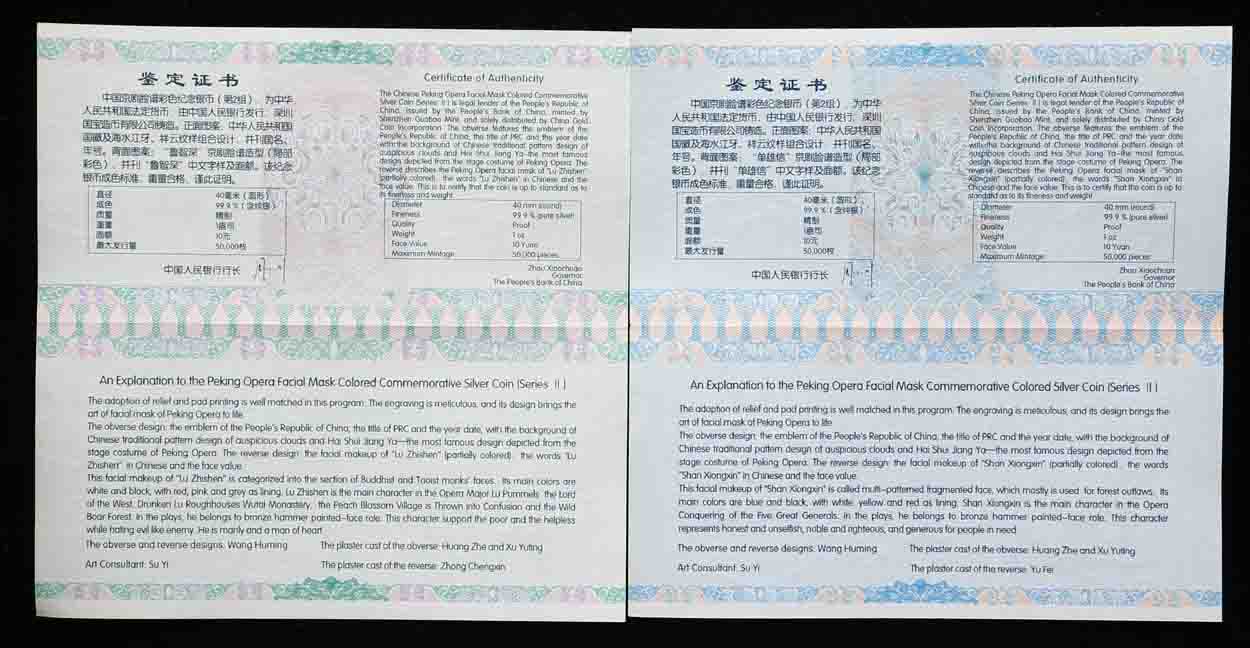 鉴定证书
中国京剧脸谱彩色纪念银币（第2组），为中华
人民共和国法定货币，由中国人民银行发行，深圳
国宝造币有限公司铸造。正面图案：中华人民共和国
国徽及海水江牙、祥云纹样组合设计，并刊国名、
年号。背面图案：“鲁智深”京剧脸谱造型（局部
彩色），并刊“鲁智深”中文字样及面额。该纪念
银币成色标准、重量合格，谨此证明。
直径 40毫米（圆形）
成色 99.9%（含纯银）
质量 精制
重量 1盎司
面额 10元
最大发行量 50,000枚
中国人民银行行长
Certificate of Authenticity
The Chinese Peking Opera Facial Mask Colored Commemorative
Silver Coin (Series II) is legal tender of the People's Republic of
China, issued by the People's Bank of China, minted by
Shenzhen Guobao Mint, and solely distributed by China Gold
Coin Incorporation. The obverse features the emblem of the
People's Republic of China, the title of PRC and the year date
with the background of Chinese traditional pattern design of
auspicious clouds and Hai Shui Jiang Ya-the most famous
design depicted from the stage costume of Peking Opera. The
reverse describes the Peking Opera facial mask of "Lu Zhishen"
(partially colored), the words "Lu Zhishen" in Chinese and the
face value. This is to certify that the coin is up to standard as to
its fineness and weight.
Diameter 40 mm (round)
Fineness 99.9 % (pure silver)
Quality Proof
Weight 1 oz
Face Value 10 Yuan
Maximum Mintage 50,000 pieces
Zhou Xiaochuan
Governor
The People's Bank of China
An Explanation to the Peking Opera Facial Mask Colored Commemorative Silver Coin (Series II)
The adoption of relief and pad printing is well matched in this program. The engraving is meticulous, and its design brings the
art of facial mask of Peking Opera to life.
The obverse design: the emblem of the People's Republic of China, the title of PRC and the year date, with the background of
Chinese traditional pattern design of auspicious clouds and Hai Shui Jiang Ya—the most famous design depicted from the
stage costume of Peking Opera. The reverse design: the facial makeup of "Lu Zhishen" (partially colored), the words "Lu
Zhishen" in Chinese and the face value.
This facial makeup of "Lu Zhishen" is categorized into the section of Buddhist and Taoist monks' faces. Its main colors are
white and black, with red, pink and grey as lining. Lu Zhishen is the main character in the Opera Major Lu Pummels the Lord
of the West, Drunken Lu Roughhouses Wutai Monastery, the Peach Blossom Village is Thrown into Confusion and the Wild
Boar Forest. In the plays, he belongs to bronze hammer painted-face role. This character support the poor and the helpless
while hating evil like enemy. He is manly and a man of heart.
The obverse and reverse designs: Wang Huming The plaster cast of the obverse: Huang Zhe and Xu Yuting
Art Consultant: Su Yi The plaster cast of the reverse: Zhong Chengxin
鉴定证书
中国京剧脸谱彩色纪念银币（第2组），为中华
人民共和国法定货币，由中国人民银行发行，深圳
国宝造币有限公司铸造。正面图案：中华人民共和国
国徽及海水江牙、祥云纹样组合设计，并刊国名、
年号。背面图案：“单雄信”京剧脸谱造型（局部
彩色），并刊“单雄信”中文字样及面额。该纪念
银币成色标准、重量合格，谨此证明。
直径 40毫米（圆形）
成色 99.9%（含纯银）
质量 精制
重量 1盎司
面额 10元
最大发行量 50,000枚
中国人民银行行长
Certificate of Authenticity
The Chinese Peking Opera Facial Mask Colored Commemorative
Silver Coin (Series II) is legal tender of the People's Republic of
China, issued by the People's Bank of China, minted by
Shenzhen Guobao Mint, and solely distributed by China Gold
Coin Incorporation. The obverse features the emblem of the
People's Republic of China, the title of PRC and the year date
with the background of Chinese traditional pattern design of
auspicious clouds and Hai Shui Jiang Ya-the most famous
design depicted from the stage costume of Peking Opera. The
reverse describes the Peking Opera facial mask of "Shan
Xiongxin" (partially colored), the words "Shan Xiongxin" in
Chinese and the face value. This is to certify that the coin is up to
standard as to its fineness and weight.
Diameter 40 mm (round)
Fineness 99.9 % (pure silver)
Quality Proof
Weight 1 oz
Face Value 10 Yuan
Maximum Mintage 50,000 pieces
Zhou Xiaochuan
Governor
The People's Bank of China
An Explanation to the Peking Opera Facial Mask Commemorative Colored Silver Coin (Series II)
The adoption of relief and pad printing is well matched in this program. The engraving is meticulous, and its design brings the
art of facial mask of Peking Opera to life.
The obverse design: the emblem of the People's Republic of China, the title of PRC and the year date, with the background of
Chinese traditional pattern design of auspicious clouds and Hai Shui Jiang Ya—the most famous design depicted from the
stage costume of Peking Opera. The reverse design: the facial makeup of "Shan Xiongxin" (partially colored), the words
"Shan Xiongxin" in Chinese and the face value.
This facial makeup of "Shan Xiongxin" is called multi-patterned fragmented face, which mostly is used for forest outlaws. Its
main colors are blue and black, with white, yellow and red as lining. Shan Xiongxin is the main character in the Opera
Conquering of the Five Great Generals. In the plays, he belongs to bronze hammer painted-face role. This character
represents honest and unselfish, noble and righteous, and generous for people in need.
The obverse and reverse designs: Wang Huming The plaster cast of the obverse: Huang Zhe and Xu Yuting
Art Consultant: Su Yi The plaster cast of the reverse: Yu Fei